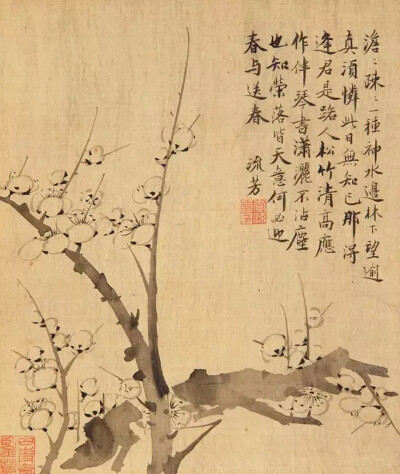 澹〻疎〻一種神水邊林下望逾
真須憐此日無知己那得
逢君是路人松竹清高應
作伴琴書瀟灑不沾塵
也知榮落皆天意何必迎
春与送春 流芳